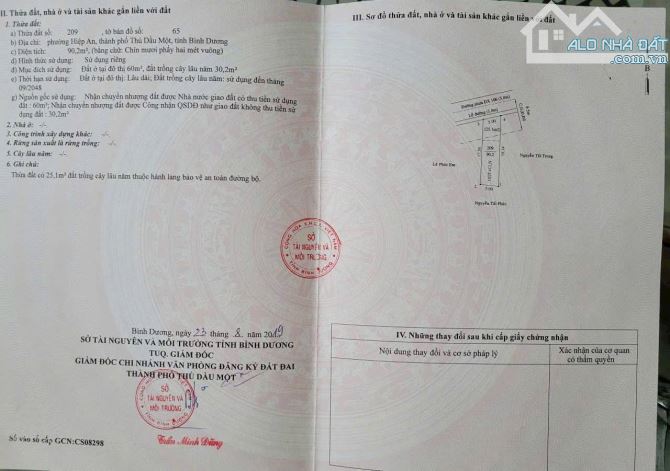 II. Thửa đất, nhà ở và tài sản khác gắn liền với đất
1. Thửa đất:
a) Thửa đất số: 209 , tờ bản đồ số: 65
b) Địa chỉ: phường Hiệp An, thành phố Thủ Dầu Một, tỉnh Bình Dương
c) Diện tích: 90,2m², (bằng chữ: Chín mươi phẩy hai mét vuông)
d) Hình thức sử dụng: Sử dụng riêng
đ) Mục đích sử dụng: Đất ở tại đô thị 60m², đất trồng cây lâu năm 30,2m²
e) Thời hạn sử dụng: Đất ở tại đô thị: Lâu dài; Đất trồng cây lâu năm: sử dụng đến tháng
09/2048
g) Nguồn gốc sử dụng: Nhận chuyển nhượng đất được Nhà nước giao đất có thu tiền sử dụng
đất : 60m²; Nhận chuyển nhượng đất được Công nhận QSDĐ như giao đất không thu tiền sử
dụng đất : 30,2m²
2. Nhà ở : -/-
3. Công trình xây dựng khác: -/-
4. Rừng sản xuất là rừng trồng: -/-
5. Cây lâu năm: -/-
6. Ghi chú:
Thửa đất có 25,1m² đất trồng cây lâu năm thuộc hành lang bảo vệ an toàn đường bộ.
Bình Dương, ngày 23 tháng 8 năm 2019
SỞ TÀI NGUYÊN VÀ MÔI TRƯỜNG TỈNH BÌNH DƯƠNG
TUQ. GIÁM ĐỐC
GIÁM ĐỐC CHI NHÁNH VĂN PHÒNG ĐĂNG KÝ ĐẤT ĐAI
THÀNH PHỐ THỦ DẦU MỘT
SỞ
TÀI NGUYÊN VÀ
MÔI TRƯỜNG
Trần Minh Dũng
Số vào sổ cấp GCN:CS08298
III. Sơ đồ thửa đất, nhà ở và tài sản khác gắn liền với đất
ALO NHÀ ĐẤT
B
5.00
209
90.2
Nguyễn Tất Trung
Nguyễn Tất Phúc
5.00
CỘNG HÒA X.H.C.N VIỆT NAM
SỞ
TÀI NGUYÊN VÀ
MÔI TRƯỜNG
TỈNH BÌNH DƯƠNG
IV. Những thay đổi sau khi cấp giấy chứng nhận
Nội dung thay đổi và cơ sở pháp lý
Xác nhận của cơ quan
có thẩm quyền